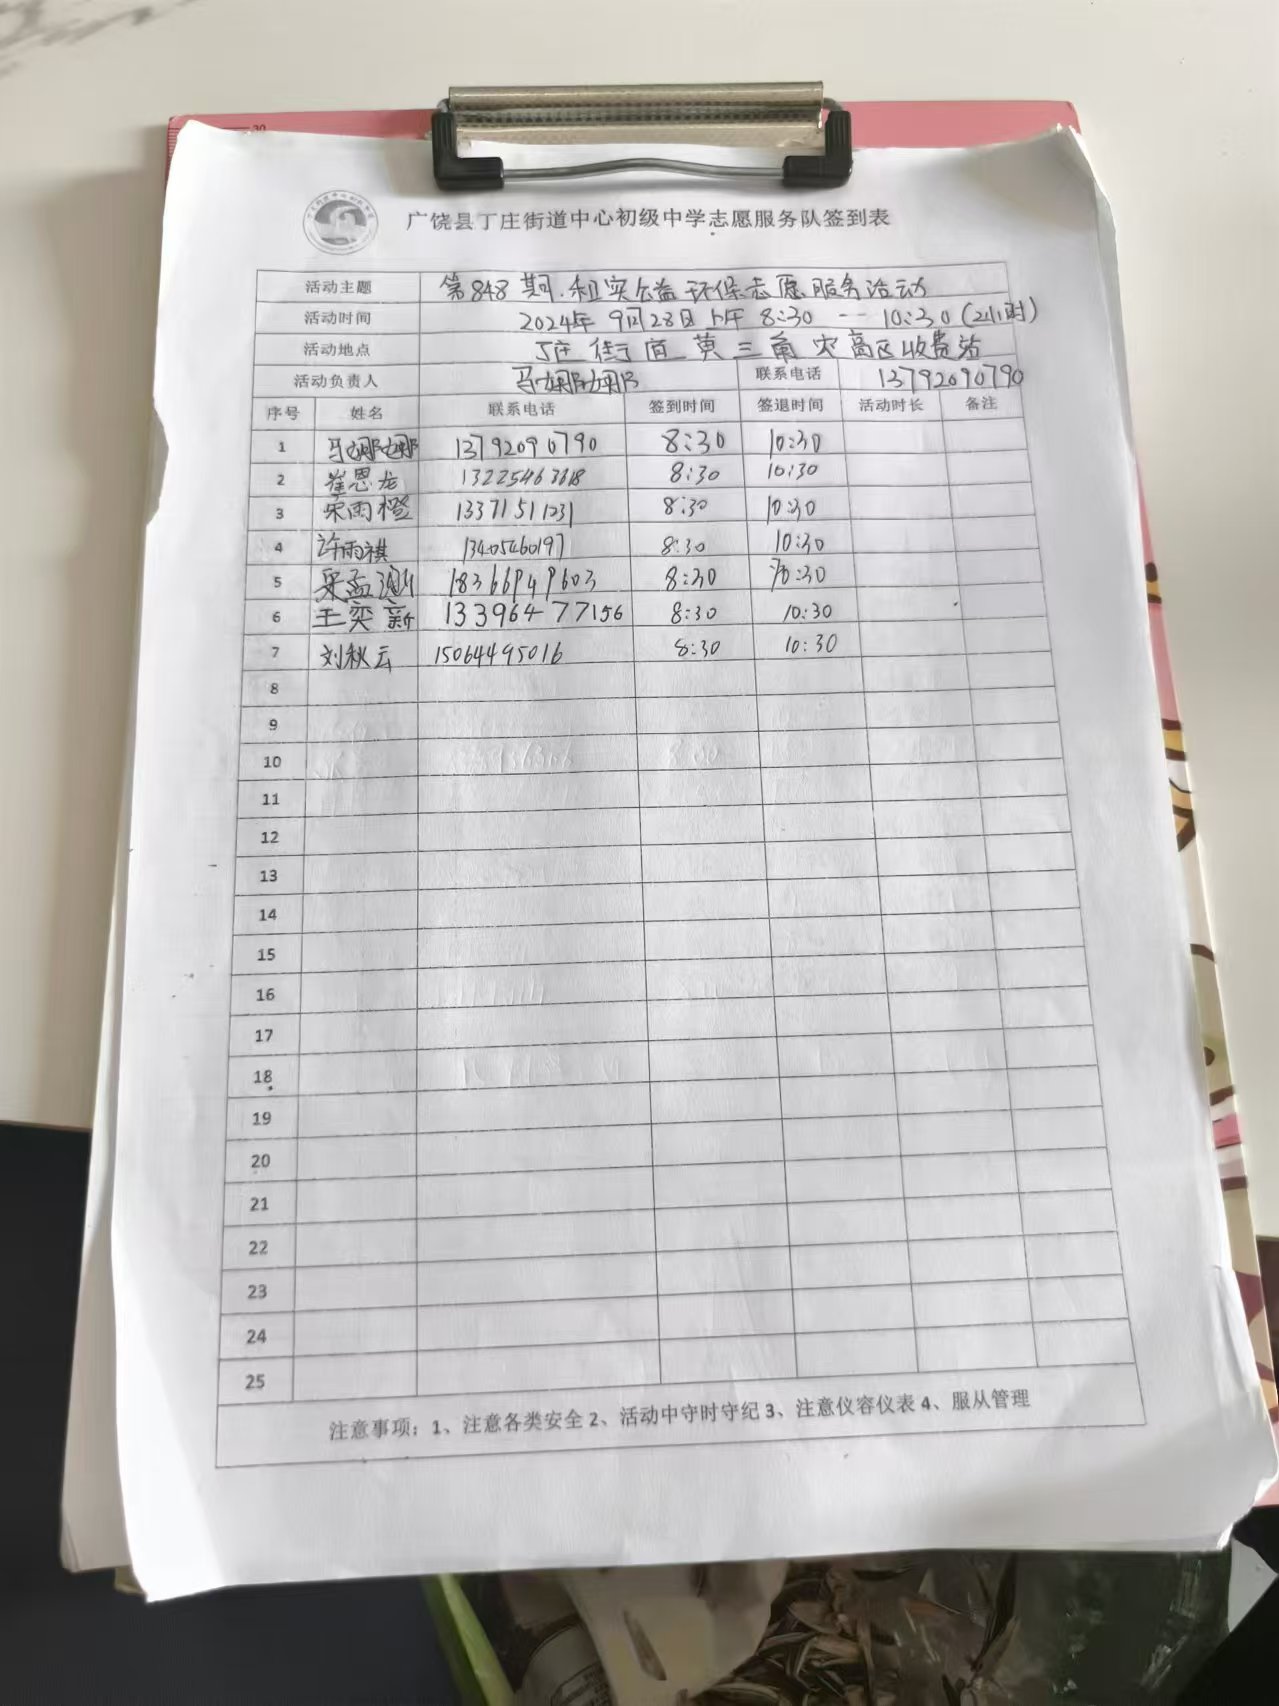 广饶县丁庄街道中心初级中学志愿服务队签到表
活动主题 第848期.和实公益环保志愿服务活动
活动时间 2024年9月28日上午8:30--10:30(2小时)
活动地点 丁庄街道黄三角农高区收费站
活动负责人 马娜娜 联系电话 13792090790
序号 姓名 联系电话 签到时间 签退时间 活动时长 备注
1 马娜娜 13792090790 8:30 10:30
2 崔恩龙 13225463618 8:30 10:30
3 宋雨橙 13371511231 8:30 10:30
4 许雨祺 13405460197 8:30 10:30
5 18366949603 8:30 10:30
6 王奕新 13396477156 8:30 10:30
7 刘秋云 15064495016 8:30 10:30
8
9
10
11
12
13
14
15
16
17
18
19
20
21
22
23
24
25
注意事项：1、注意各类安全 2、活动中守时守纪 3、注意仪容仪表 4、服从管理